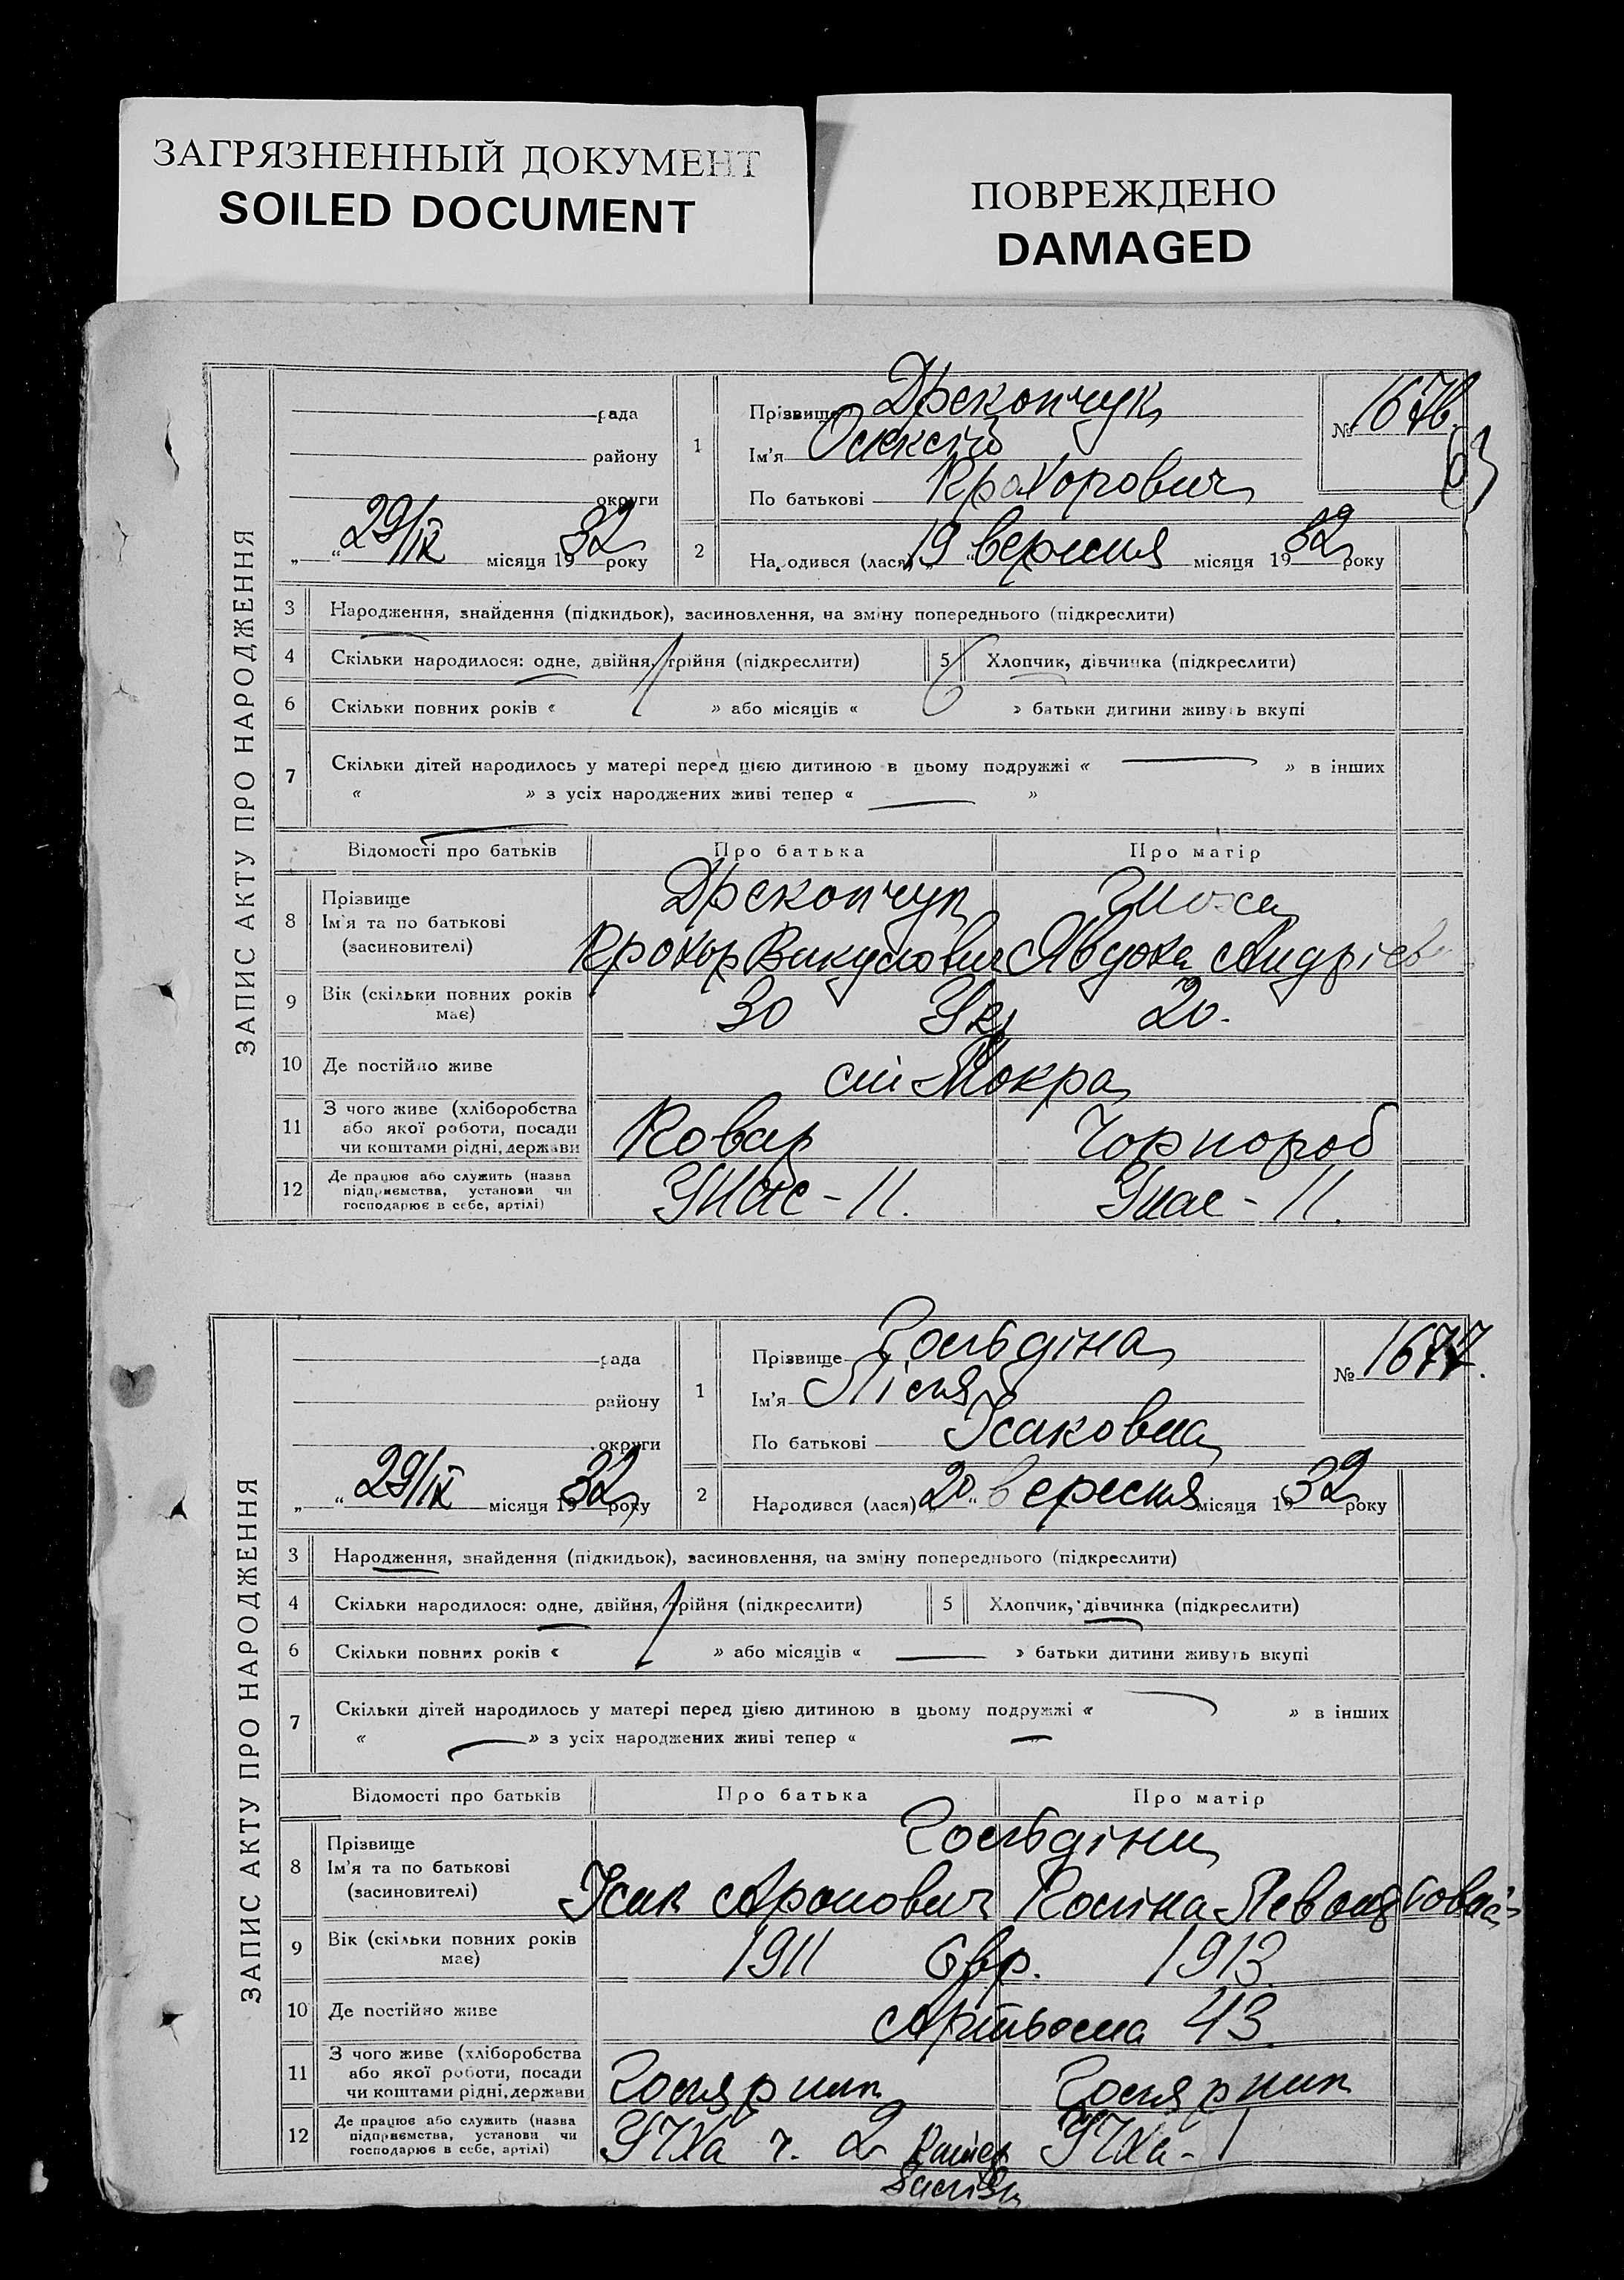 ЗАГРЯЗНЕННЫЙ ДОКУМЕНТ
SOILED DOCUMENT
ПОВРЕЖДЕНО
DAMAGED
ЗАПИС АКТУ ПРО НАРОДЖЕННЯ
рада
району
округи
„ “ 29/IX місяця 1932 року
1
Прізвище Дрекопчук
Ім'я Олексій
По батькові Прохорович
№ 1676.
63
2 Народився (лася) „19“ вересня місяця 1932 року
3 Народження, знайдення (підкидьок), засиновлення, на зміну попереднього (підкреслити)
4 Скільки народилося: одне, двійня, трійня (підкреслити) 5 Хлопчик, дівчинка (підкреслити)
6 Скільки повних років « 1 » або місяців « » батьки дитини живуть вкупі
7 Скільки дітей народилось у матері перед цією дитиною в цьому подружжі « — » в інших
« » з усіх народжених живі тепер « — »
Відомості про батьків Про батька Про матір
8 Прізвище
Ім'я та по батькові
(засиновителі)
Дрекопчук
Прохор Викулович Явдоха Андрієв
9 Вік (скільки повних років має)
30 Укр 20.
10 Де постійно живе
Мокра
11 З чого живе (хліборобства
або якої роботи, посади
чи коштами рідні, держави
Ковар Чорнороб
12 Де працює або служить (назва
підприємства, установи чи
господарює в себе, артілі)
- 11. - 11.
ЗАПИС АКТУ ПРО НАРОДЖЕННЯ
рада
району
округи
„ “ 29/IX місяця 1932 року
1
Прізвище Гольдіна
Ім'я Лісля
По батькові Ісаковна
№ 1677.
2 Народився (лася) „20“ вересня місяця 1932 року
3 Народження, знайдення (підкидьок), засиновлення, на зміну попереднього (підкреслити)
4 Скільки народилося: одне, двійня, трійня (підкреслити) 5 Хлопчик, дівчинка (підкреслити)
6 Скільки повних років « 1 » або місяців « — » батьки дитини живуть вкупі
7 Скільки дітей народилось у матері перед цією дитиною в цьому подружжі « — » в інших
« — » з усіх народжених живі тепер « — »
Відомості про батьків Про батька Про матір
8 Прізвище
Ім'я та по батькові
(засиновителі)
Гольдіни
Ісак Аронович Поліна
9 Вік (скільки повних років має)
1911 Євр. 1913.
10 Де постійно живе
Артьома 43
11 З чого живе (хліборобства
або якої роботи, посади
чи коштами рідні, держави
12 Де працює або служить (назва
підприємства, установи чи
господарює в себе, артілі)
ч. 2